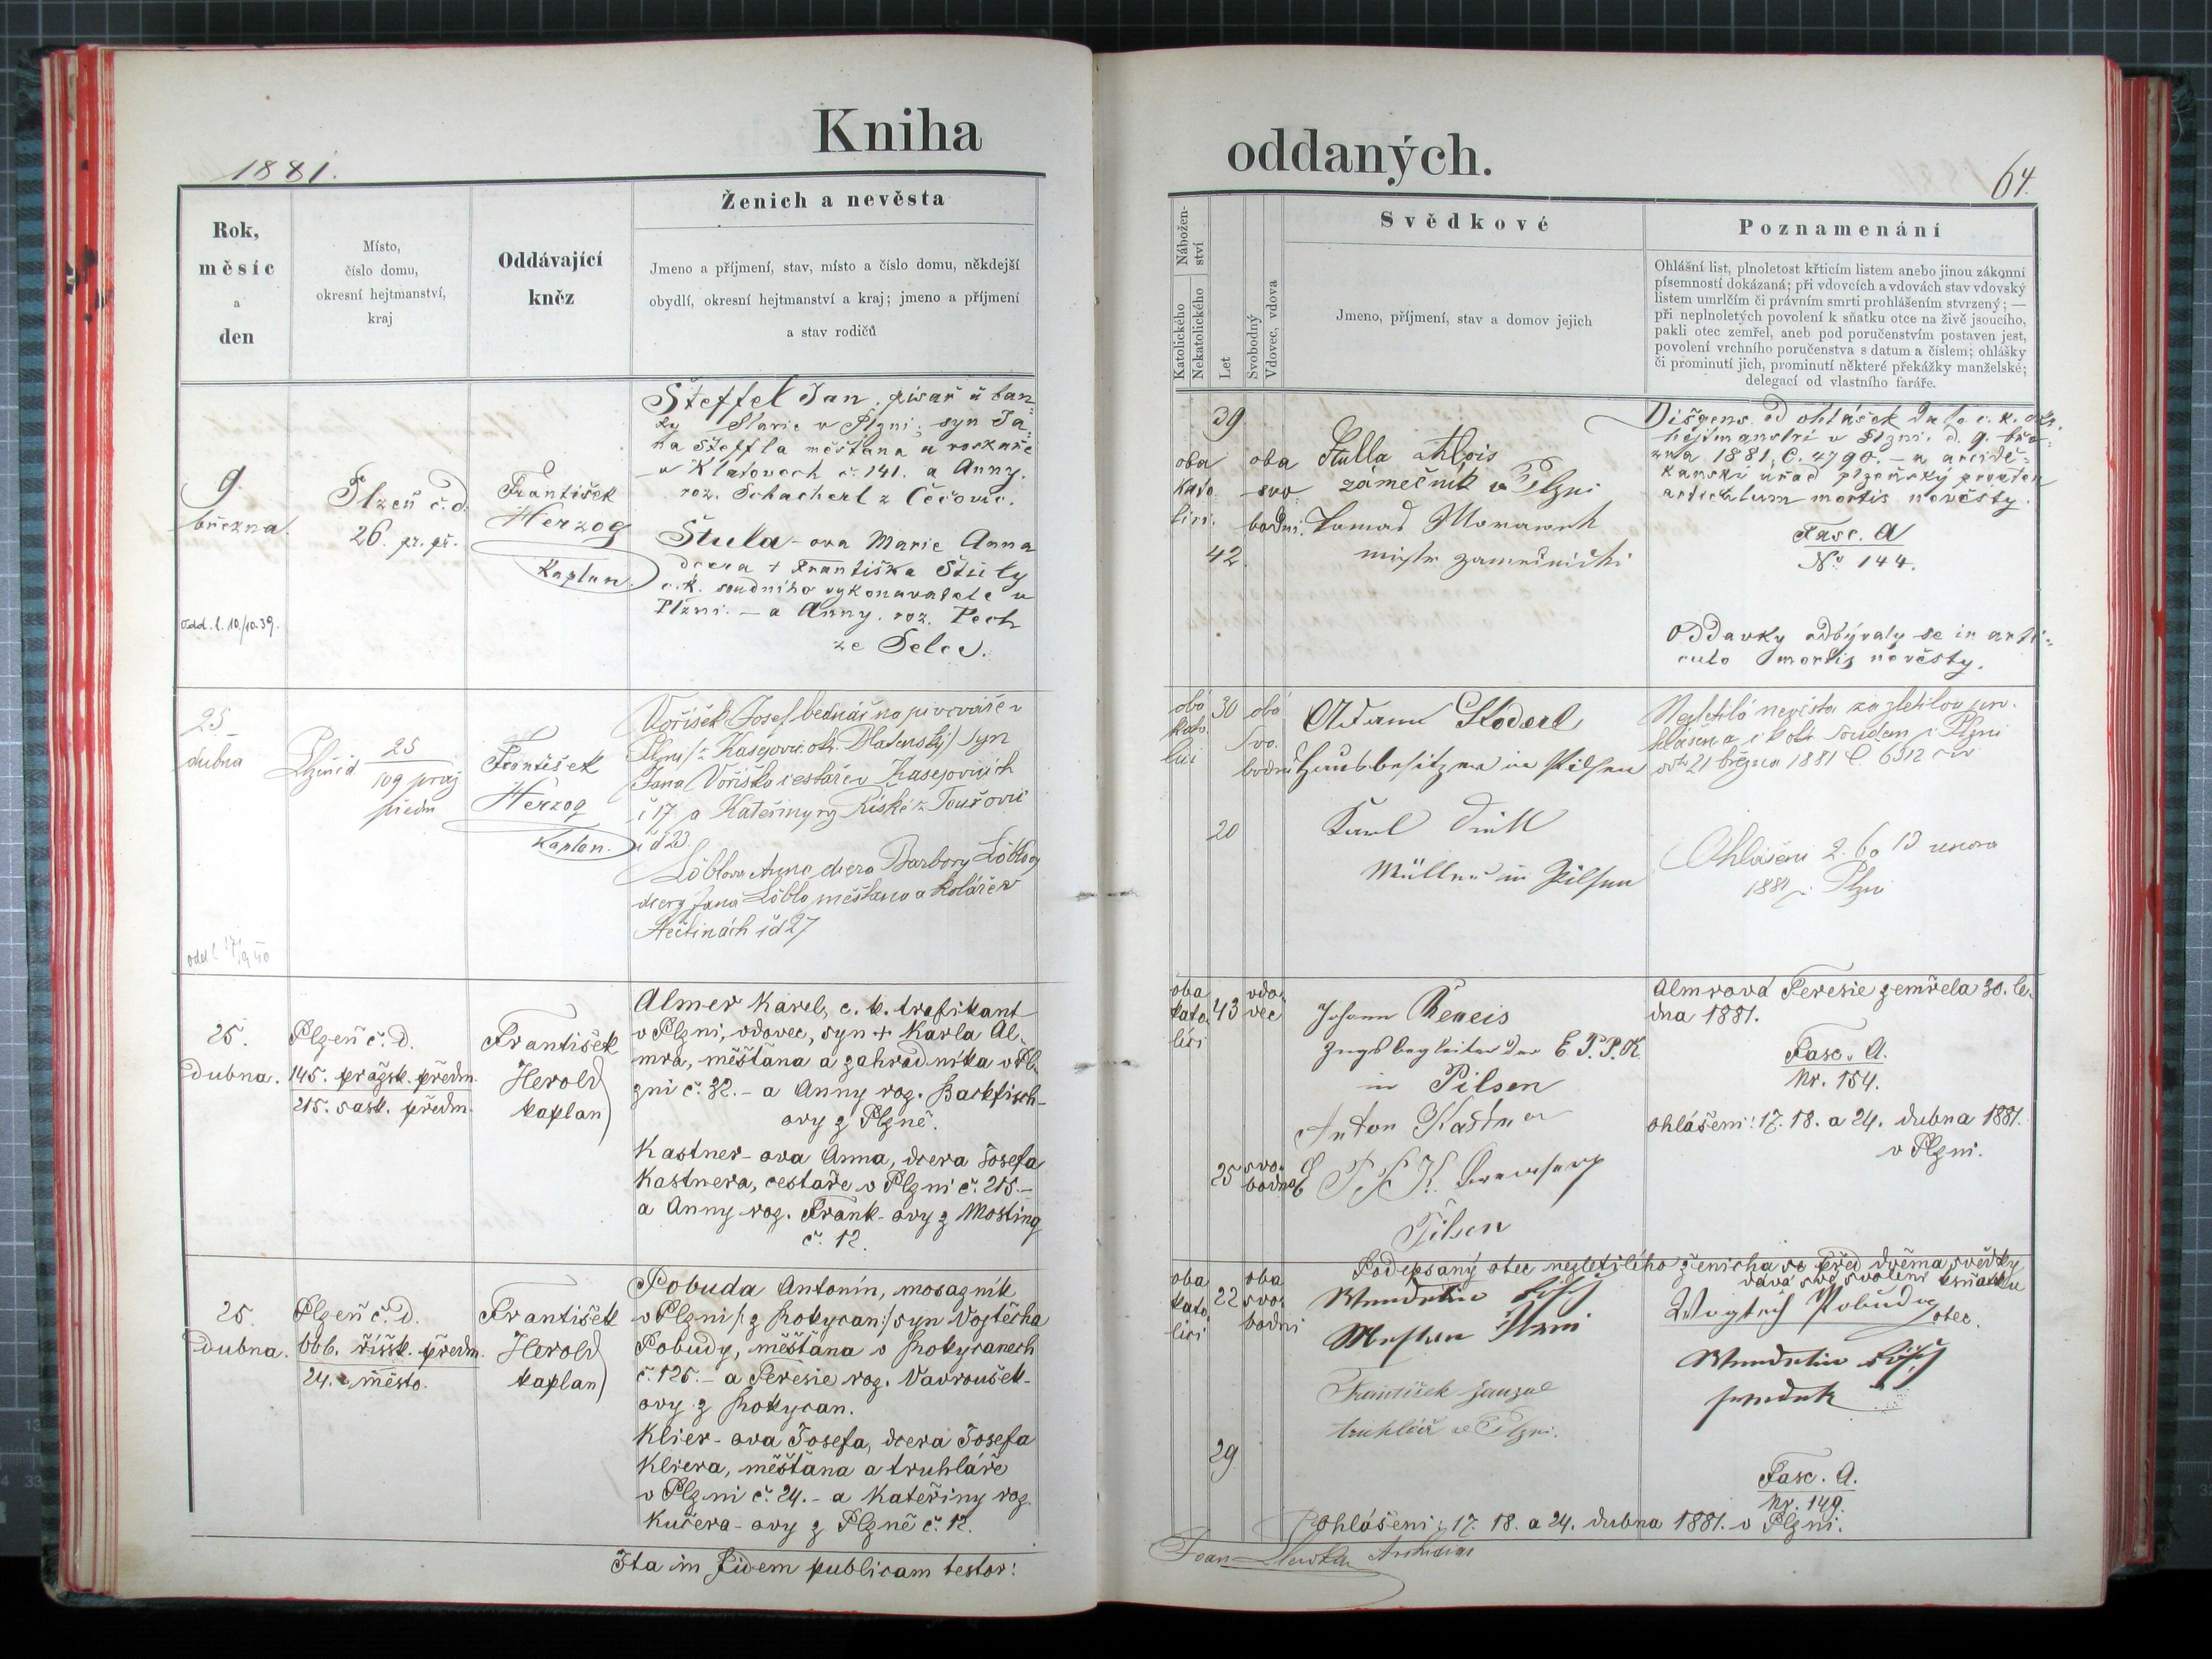 Kniha
oddaných.
1881.
64.
Rok,
měsíc
a
den
Místo,
číslo domu,
okresní hejtmanství,
kraj
Oddávající
kněz
Ženich a nevěsta
Jmeno a příjmení, stav, místo a číslo domu, někdejší
obydlí, okresní hejtmanství a kraj; jmeno a příjmení
a stav rodičů
Nábožen-
ství
Katolického
Nekatolického
Let
Svobodný
Vdovec, vdova
Svědkové
Jmeno, příjmení, stav a domov jejich
Poznamenání
Ohlášní list, plnoletost křticím listem anebo jinou zákonní
písemností dokázaná; při vdovcích a vdovách stav vdovský
listem umrlčím či právním smrti prohlášením stvrzený; —
při neplnoletých povolení k sňatku otce na živě jsoucího,
pakli otec zemřel, aneb pod poručenstvím postaven jest,
povolení vrchního poručenstva s datum a číslem; ohlášky
či prominutí jich, prominutí některé překážky manželské;
delegací od vlastního faráře.
9.
března.
Odd. l. 10./10.39.
Plzeň č. d.
26. pr. př.
František
Herzog
Kaplan.
Šteffel Jan, písař u ban-
ky Slavie v Plzni; syn Ja-
na Šteffla měšťana a
v Klatovech č. 141. a Anny,
roz. Schacherl z Čečovic.
Štula-ova Marie Anna
dcera + Františka Štuly
c. k. soudního vykonavatele v
Plzni. — a Anny. roz. Pech
ze Selce.
39
oba
kato
líci.
42
oba
svo
bodni.
Stulla Alois
zámečník v Plzni
Tomáš Morawek
Dispens. od ohlášek dato c. k. okr.
hejtmanství v Plzni. d. 9. bře-
zna 1881, č. 4790. — a arcidě-
kanský úřad plzeňský
articulum mortis nevěsty.
Fasc. A
No 144.
Oddavky odbývaly se in arti-
culo mortis nevěsty.
25
dubna
odd l. 17/9 40
Plzeň čd
25
109 praž
předm
František
Herzog
Kaplan.
Voříšek Josef bednář na pivovaře v
Plzni/z Kasejovic ok. Blatenský/ syn
Jana Voříška cestáře v Kasejovicích
č 17 a Kateřiny roz Říské z Touřovic
č d 23.
Löblova Anna dcera Barbory Löblovy
dcery Jana Löbla měšťana a koláře v
Nečtinách čd 27
oba
kato
líci
30
20
oba
svo.
bodni
Adam Stoderl
Hausbesitzer in Pilsen
Karl
Müller in Pilsen
Nezletilá nevěsta za zletilou pro.
hlášena c k ok. soudem v Plzni
21 března 1881 č. 6312
Ohlášeni 2. 6 a 13 února
1881 v Plzni
25.
Dubna.
Plzeň č. d.
145. pražsk. předm.
215. sask. předm.
František
Herold
kaplan
Almer Karel, c. k. trafikant
v Plzni, vdovec, syn + Karla Al-
mra, měšťana a zahradníka v Pl-
zni č. 32. - a Anny roz. Backfisch-
ovy z Plzně.
Kastner-ova Anna, dcera Josefa
Kastnera, cestaře v Plzni č. 215.-
a Anny roz. Frank-ovy z Mosting
č. 12.
oba
kato
líci
43
vdo
vec
25
svo.
bodná
Johann Reneis
Zugsbegleiter der E. P. P. K.
in Pilsen
Anton Kastner
Pilsen
Almrová Teresie zemřela 30. le-
dna 1881.
Fasc. A.
Nr. 154.
Ohlášeni: 17. 18. a 24. dubna 1881.
v Plzni.
25.
Dubna.
Plzeň č. d.
666. říšsk. předm.
24. město.
František
Herold
kaplan
Pobuda Antonín, mosazník
v Plzni /: z Rokycan:/ syn Vojtěcha
Pobudy, měšťana v Rokycanech
č. 125. - a Teresie roz. Vavroušek-
ovy z Rokycan.
Klier-ova Josefa, dcera Josefa
Kliera, měšťana a truhláře
v Plzni č. 24. - a Kateřiny roz.
Kučera-ovy z Plzně č. 12.
oba
kato
líci
22
29
oba
svo
bodni
Podepsaný otec nezletilého ženicha ve před dvěma svědky
dává své svolení k sňatku
Wendelin
František
truhlář v Plzni.
Pobuda
otec.
Wendelin
Fasc. A.
Nr. 149.
Ohlášeni: 17. 18. a 24. dubna 1881. v Plzni.
Ita in fidem publicam testor: